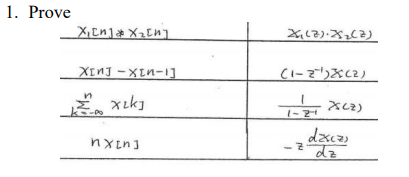 1. Prove
X₁[n] * X₂[n] X₁(z)·X₂(z)
X[n] - X[n-1] (1-z⁻¹)X(z)
n
∑ x[k] 1/(1-z⁻¹) X(z)
k=-∞
nx[n] -z dX(z)/dz